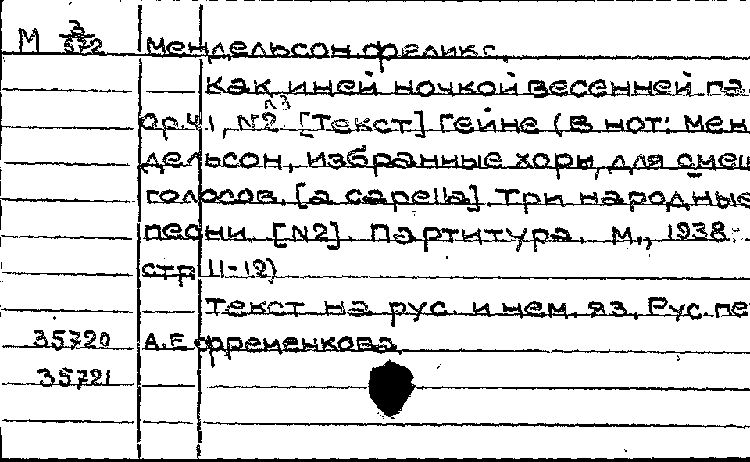 М 3/572 Мендельсон, Феликс.
Как иней ночкой весенней па
Op.41, №2 №3 [Текст] Гейне (В нот: Мен
дельсон, избранные хоры для смеш
голосов. [a capella]. Три народные
песни. [№2]. Партитура. М., 1938.
стр 11-12)
Текст на рус. и нем. яз. Рус. пе
35720 А.Ефременкова.
35721